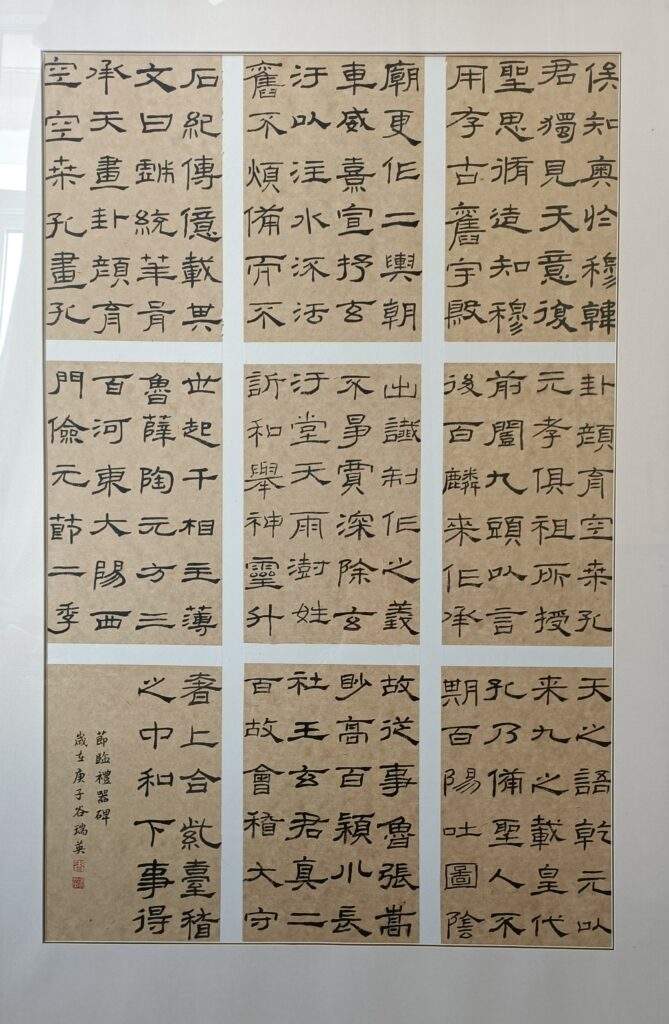 侯知奧於穆韓
君獨見天意復
聖思循造知穆
用存古舊宇殿
廟更作二輿朝
車威熹宣抒玄
汙以注水流法
舊不煩備而不
石紀傳億載其
文曰戲統華胥
承天畫卦顏育
空空桑孔畫孔
卦顏育空桑孔
元孝俱祖所授
前闓九頭以言
後百麟來作承
出讖制作之義
不爭賈深除玄
汙堂天雨澍姓
訢和舉神靈升
世起千相主薄
魯薛陶元方三
百河東大陽西
門儉元節二季
天之語乾元以
來九之載皇代
孔乃備聖人不
期百陽吐圖陰
故從事魯張嵩
眇高百潁川長
社王玄君真二
百故會稽大守
者上合紫臺稽
之中和下事得
節臨禮器碑
歲在庚子谷瑞英